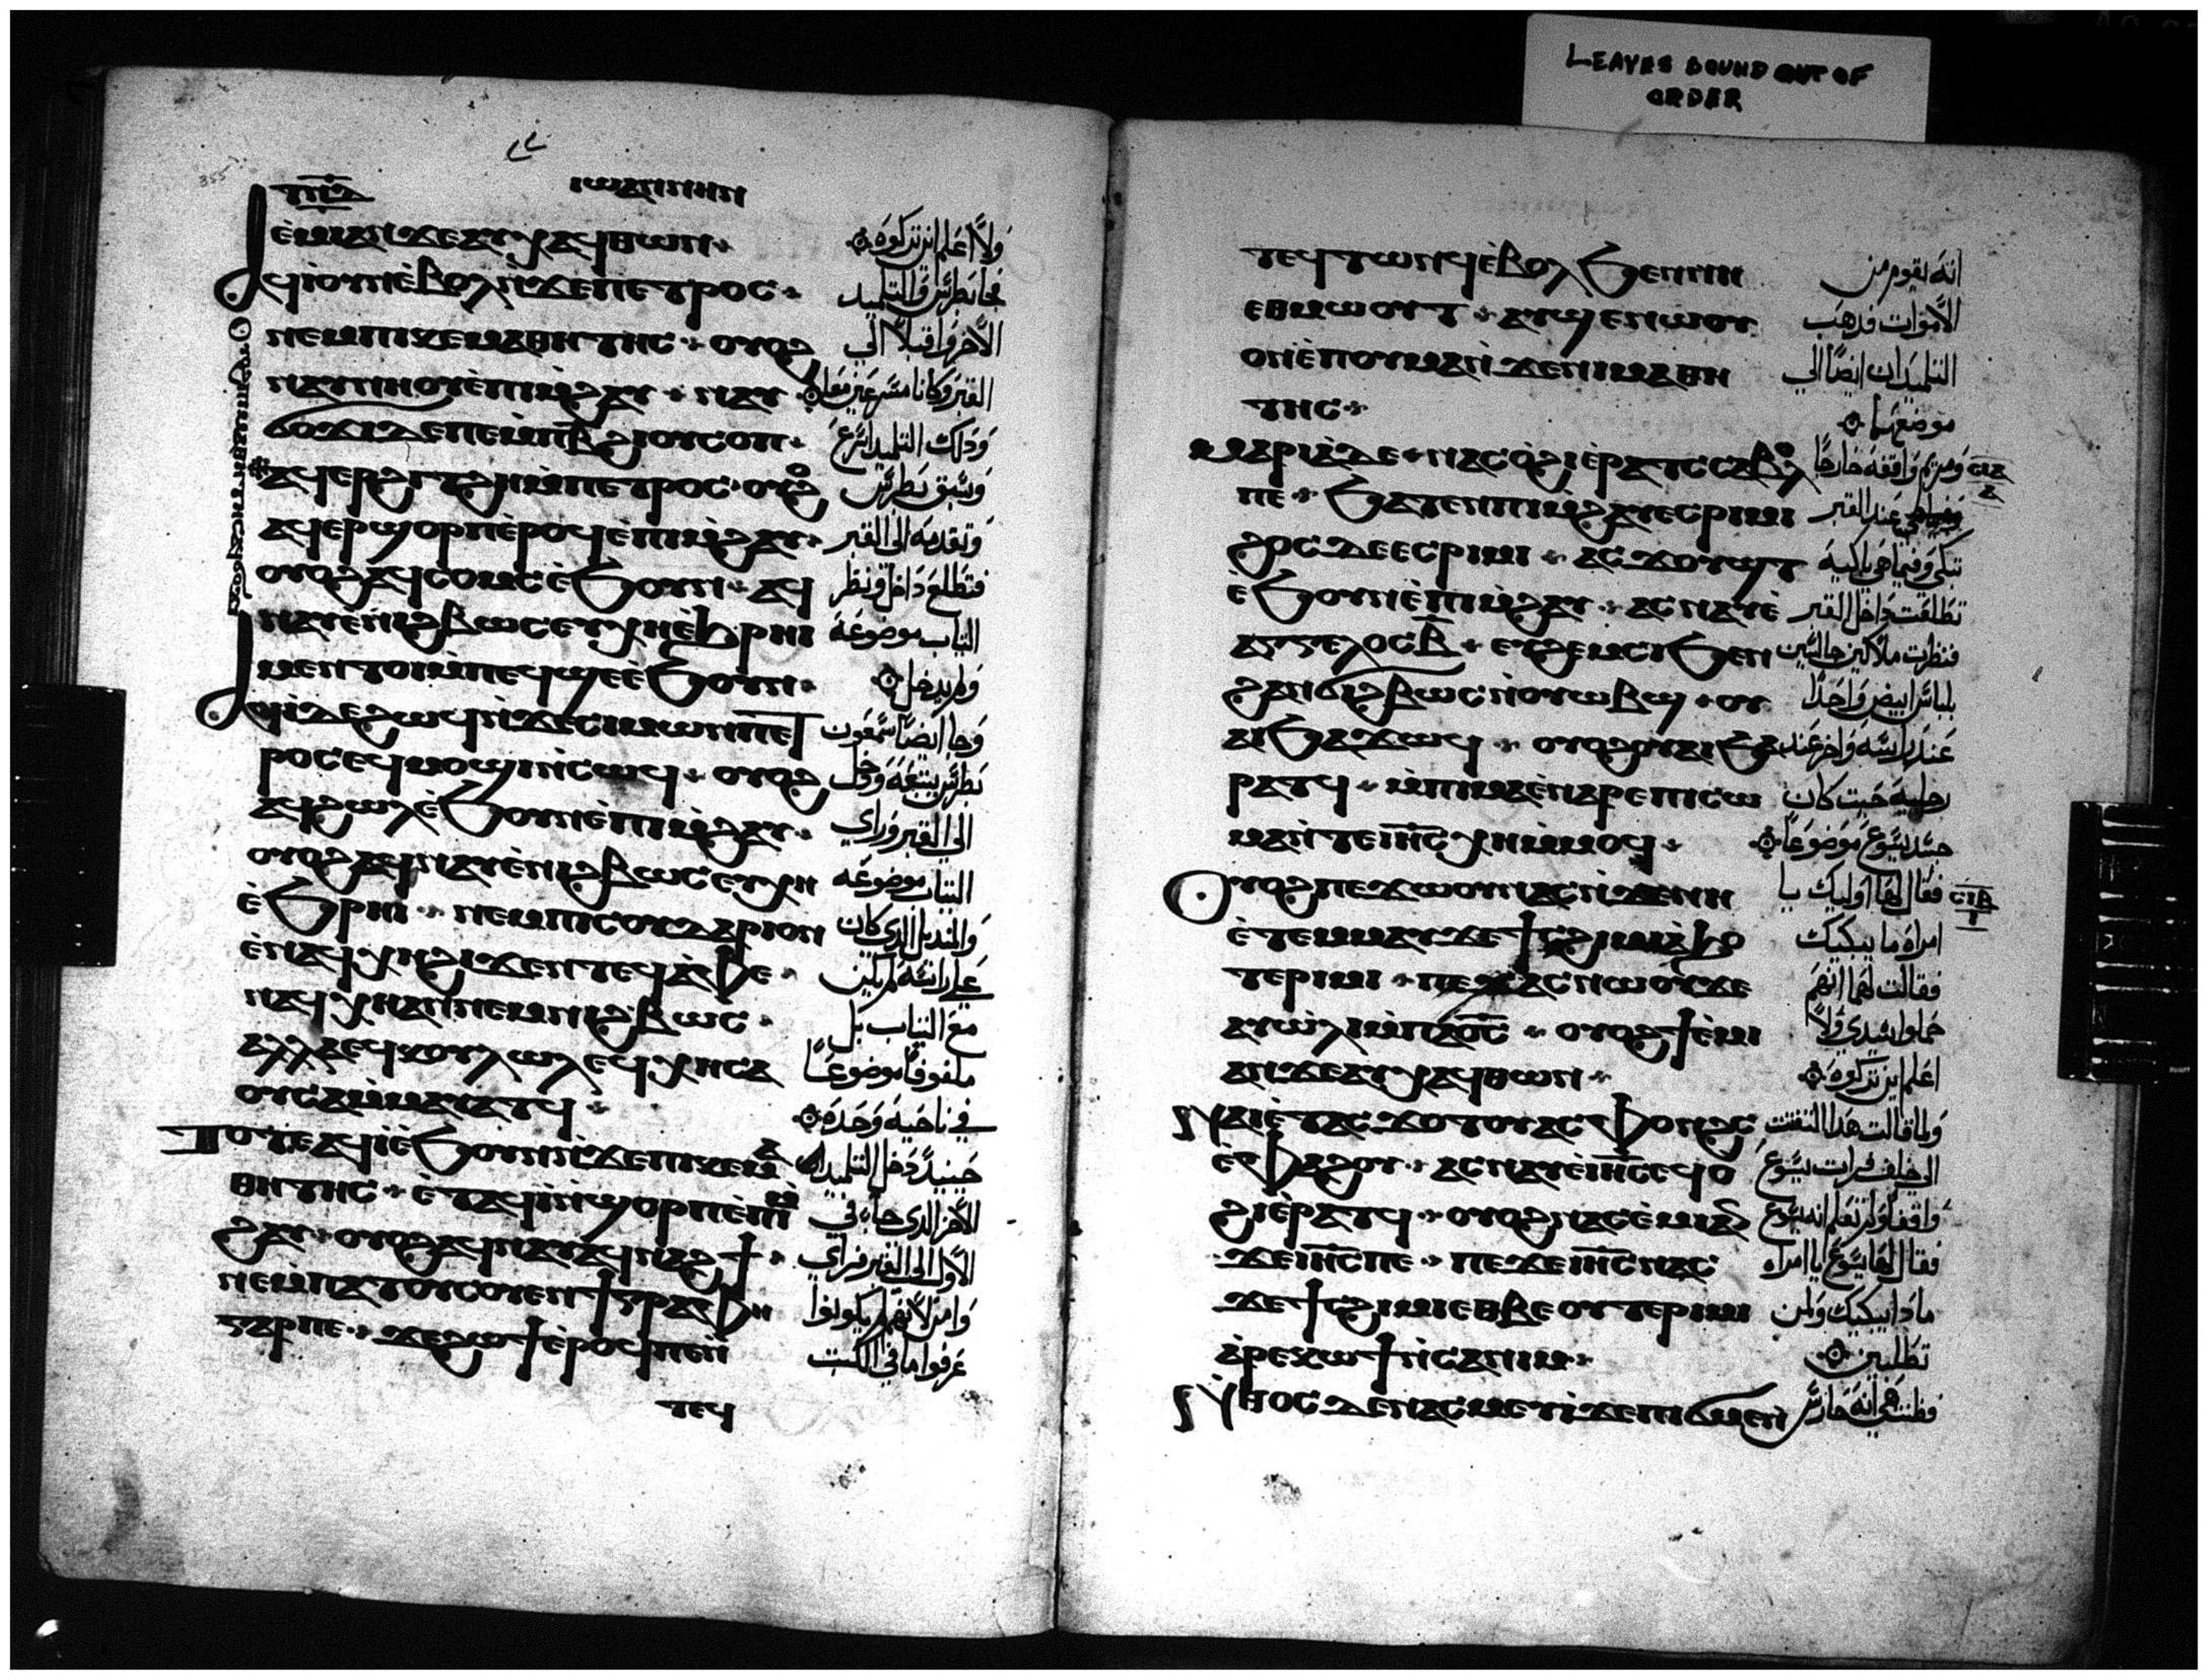 LEAVES BOUND OUT OF
ORDER
355
ⲓⲱⲁⲛⲛⲏⲛ
ⲉ̀ⲙⲓⲁⲛϫⲉⲁⲩⲭⲁϥⲑⲱⲛ
ⲁϥⲓ̀ⲟⲩⲛⲉ̀ⲃⲟⲗⲛ̀ϫⲉⲡⲉⲧⲣⲟⲥ
ⲛⲉⲙⲡⲓⲕⲉⲙⲁⲑⲏⲧⲏⲥ ⲟⲩⲟϩ
ⲛⲁⲩⲛⲏⲟⲩⲉ̀ⲡⲓⲙ̀ϩⲁⲩ ⲛⲁⲩ
ϭⲟϫⲓⲇⲉⲡⲉⲙⲡⲃ̅ϩⲓⲟⲩⲥⲟⲡ
ⲟⲩⲟϩⲡⲓⲙⲁⲑⲏⲧⲏⲥⲁϥϭⲟϫⲓ
ⲁϥⲉⲣϩⲓⲧϩⲏⲙ̀ⲡⲉⲧⲣⲟⲥ ⲟⲩⲟϩ
ⲁϥⲉⲣϣⲟⲣⲡⲉ̀ⲣⲟϥⲉ̀ⲡⲓⲙ̀ϩⲁⲩ
ⲟⲩⲟϩⲁϥⲥⲟⲙⲥⲉ̀ϧⲟⲩⲛ ⲁϥ
ⲛⲁⲩⲉ̀ⲛⲓϩⲃⲱⲥⲉⲩⲭⲏⲉ̀ϧⲣⲏⲓ
ⲙⲉⲛⲧⲟⲓⲙ̀ⲡⲉϥϣⲉⲉ̀ϧⲟⲩⲛ
ⲁϥⲓ̀ⲇⲉϩⲱϥⲛ̀ϫⲉⲥⲓⲙⲱⲛⲡⲉⲧ
ⲣⲟⲥⲉϥⲙⲟϣⲓⲛ̀ⲥⲱϥ ⲟⲩⲟϩ
ⲁϥϩⲱⲗⲉ̀ϧⲟⲩⲛⲉ̀ⲡⲓⲙ̀ϩⲁⲩ
ⲟⲩⲟϩⲁϥⲛⲁⲩⲉ̀ⲛⲓϩⲃⲱⲥⲉⲩⲭⲏ
ⲉ̀ϧⲣⲏⲓ ⲛⲉⲙⲡⲓⲥⲟⲩⲇⲁⲣⲓⲟⲛ
ⲉ̀ⲛⲁϥⲭⲏϩⲓϫⲉⲛⲧⲉϥⲁ̀ⲫⲉ
ⲛⲁϥⲭⲏⲁⲛⲛⲉⲙⲛⲓϩⲃⲱⲥ
ⲁⲗⲗⲁⲉϥⲕⲟⲩⲗⲱⲗⲉϥⲭⲏⲥⲁ
ⲟⲩⲥⲁⲙ̀ⲙⲁⲩⲁⲧϥ
ⲧⲟⲧⲉⲁϥⲓ̀ⲉ̀ϧⲟⲩⲛⲛ̀ϫⲉⲡⲓⲕⲉⲙⲁ
ⲑⲏⲧⲏⲥ ⲉ̀ⲧⲁϥⲓ̀ⲛ̀ϣⲟⲣⲡⲉ̀ⲡⲓⲙ̀
ϩⲁⲩ ⲟⲩⲟϩⲁϥⲛⲁⲩⲁϥⲛⲁϩϯ
ⲛⲉⲙ̀ⲡⲁⲧⲟⲩⲥⲟⲩⲉⲛϯⲅⲣⲁⲫⲏ
ⲅⲁⲣⲡⲉ ϫⲉϩⲱϯⲉ̀ⲣⲟϥⲡⲉⲛ̀
ⲧⲉϥ
ولا اعلم اين تركوه
فجا بطرس والتلميد
الاخر واقبلا الي
القبر وكانا مسرعين معا
ودلك التلميد اسرع
وسبق بطرس
وتقدمه الى القبر
فتطلع داخل ونظر
التياب موضوعه
ولم يدخل
وجا ايضا سمعون
بطرس يتبعه ودخل
الى القبر وراي
التياب موضوعه
والمنديل الدي كان
علي راسه لم يكن
مع التياب بل
ملفوفا موضوعا
في ناحيه وحده
حينيد دخل التلميد
الاخر الدي جا في
الاول الى القبر فراي
وامن لانهم لم يكونوا
عرفوا ما في الكتب
ⲧⲉϥⲧⲱⲛϥⲉ̀ⲃⲟⲗϧⲉⲛⲛⲏ
ⲉⲑⲙⲱⲟⲩⲧ ⲁⲩϣⲉⲛⲱⲟⲩ
ⲟⲛⲉ̀ⲡⲟⲩⲙⲁⲛ̀ϫⲉⲛⲓⲙⲁⲑⲏ
ⲧⲏⲥ
ⲙⲁⲣⲓⲁ̀ⲇⲉ ⲛⲁⲥⲟ̀ϩⲓⲉ̀ⲣⲁⲧⲥⲥⲁⲃⲟⲗ
ⲡⲉ ϧⲁⲧⲉⲛⲡⲓⲙ̀ϩⲁⲩⲉⲥⲣⲓⲙⲓ
ϩⲟⲥⲇⲉⲉⲥⲣⲓⲙⲓ ⲁⲥϫⲟⲩϣⲧ
ⲉϧⲟⲩⲛⲉ̀ⲡⲓⲙ̀ϩⲁⲩ ⲁⲥⲛⲁⲩⲉ̀
ⲁⲅⲅⲉⲗⲟⲥⲃ̅ ⲉⲩϩⲉⲙⲥⲓϧⲉⲛ
ϩⲁⲛϭⲓϩⲃⲱⲥⲛ̀ⲟⲩⲱⲃϣ ⲟⲩ
ⲁⲓϧⲁϫⲱϥ ⲟⲩⲟϩⲟⲩⲁⲓϧⲁ
ⲣⲁⲧϥ ⲙ̀ⲡⲓⲙⲁⲉ̀ⲛⲁⲣⲉⲡⲓⲥⲱ
ⲙⲁⲛ̀ⲧⲉⲓⲏ̅ⲥ̅ⲭⲏⲙ̀ⲙⲟϥ
ⲟⲩⲟϩⲡⲉϫⲱⲟⲩⲛⲁⲥⲛ̀ϫⲉⲛⲏ
ⲉ̀ⲧⲉⲙⲙⲁⲩϫⲉϯⲥϩⲓⲙⲓⲁ̀ϧⲟ
ⲧⲉⲣⲓⲙⲓ ⲡⲉϫⲁⲥⲛⲱⲟⲩϫⲉ
ⲁⲩⲱ̀ⲗⲓⲙ̀ⲡⲁⲟ̅ⲥ̅ ⲟⲩⲟϩϯⲉ̀ⲙⲓ
ⲁⲛϫⲉⲁⲩⲭⲁϥⲑⲱⲛ
ⲛⲁⲓⲉ̀ⲧⲁⲥϫⲟⲧⲟⲩⲁⲥⲫⲟⲛϩⲥ
ⲉ̀ⲫⲁϩⲟⲩ ⲁⲥⲛⲁⲩⲉ̀ⲓⲏ̅ⲥ̅ⲉϥⲟ
ϩⲓⲉ̀ⲣⲁⲧϥ ⲟⲩⲟϩⲛⲁⲥⲉ̀ⲙⲓⲁⲛ
ϫⲉⲓⲏ̅ⲥ̅ⲡⲉ ⲡⲉϫⲉⲓⲏ̅ⲥ̅ⲛⲁⲥ
ϫⲉϯⲥϩⲓⲙⲓⲉⲑⲃⲉⲟⲩⲧⲉⲣⲓⲙⲓ
ⲁ̀ⲣⲉⲕⲱϯⲛ̀ⲥⲁⲛⲓⲙ
ⲛ̀ⲑⲟⲥⲇⲉⲛⲁⲥⲙⲉⲩⲓ̀ϫⲉⲡⲓϭⲙⲉⲛ
انه يقوم من
الاموات فدهب
التلميدان ايضا الي
موضعهما
ومريم واقفه خارجا
عند القبر
تبكي وفيما هي باكيه
تطلعت داخل القبر
فنظرت ملاكين جالسين
بلباس ابيض واحدا
عند راسه واخر عند
رجليه حيت كان
جسد يسوع موضوعا
فقال لها اوليك يا
امراه ما يبكيك
فقالت لهما انهم
حملوا سيدي ولا
اعلم اين تركوه
ولما قالت هدا التفتت
الى خلف فرات يسوع
واقفا ولم تعلم انه يسوع
فقال لها يسوع يا امراه
ما دا يبكيك ولمن
تطلبين
فظنت هي انه حارس
ⲥⲓⲁ
ⲁ
ⲥⲓⲃ
ⲓ